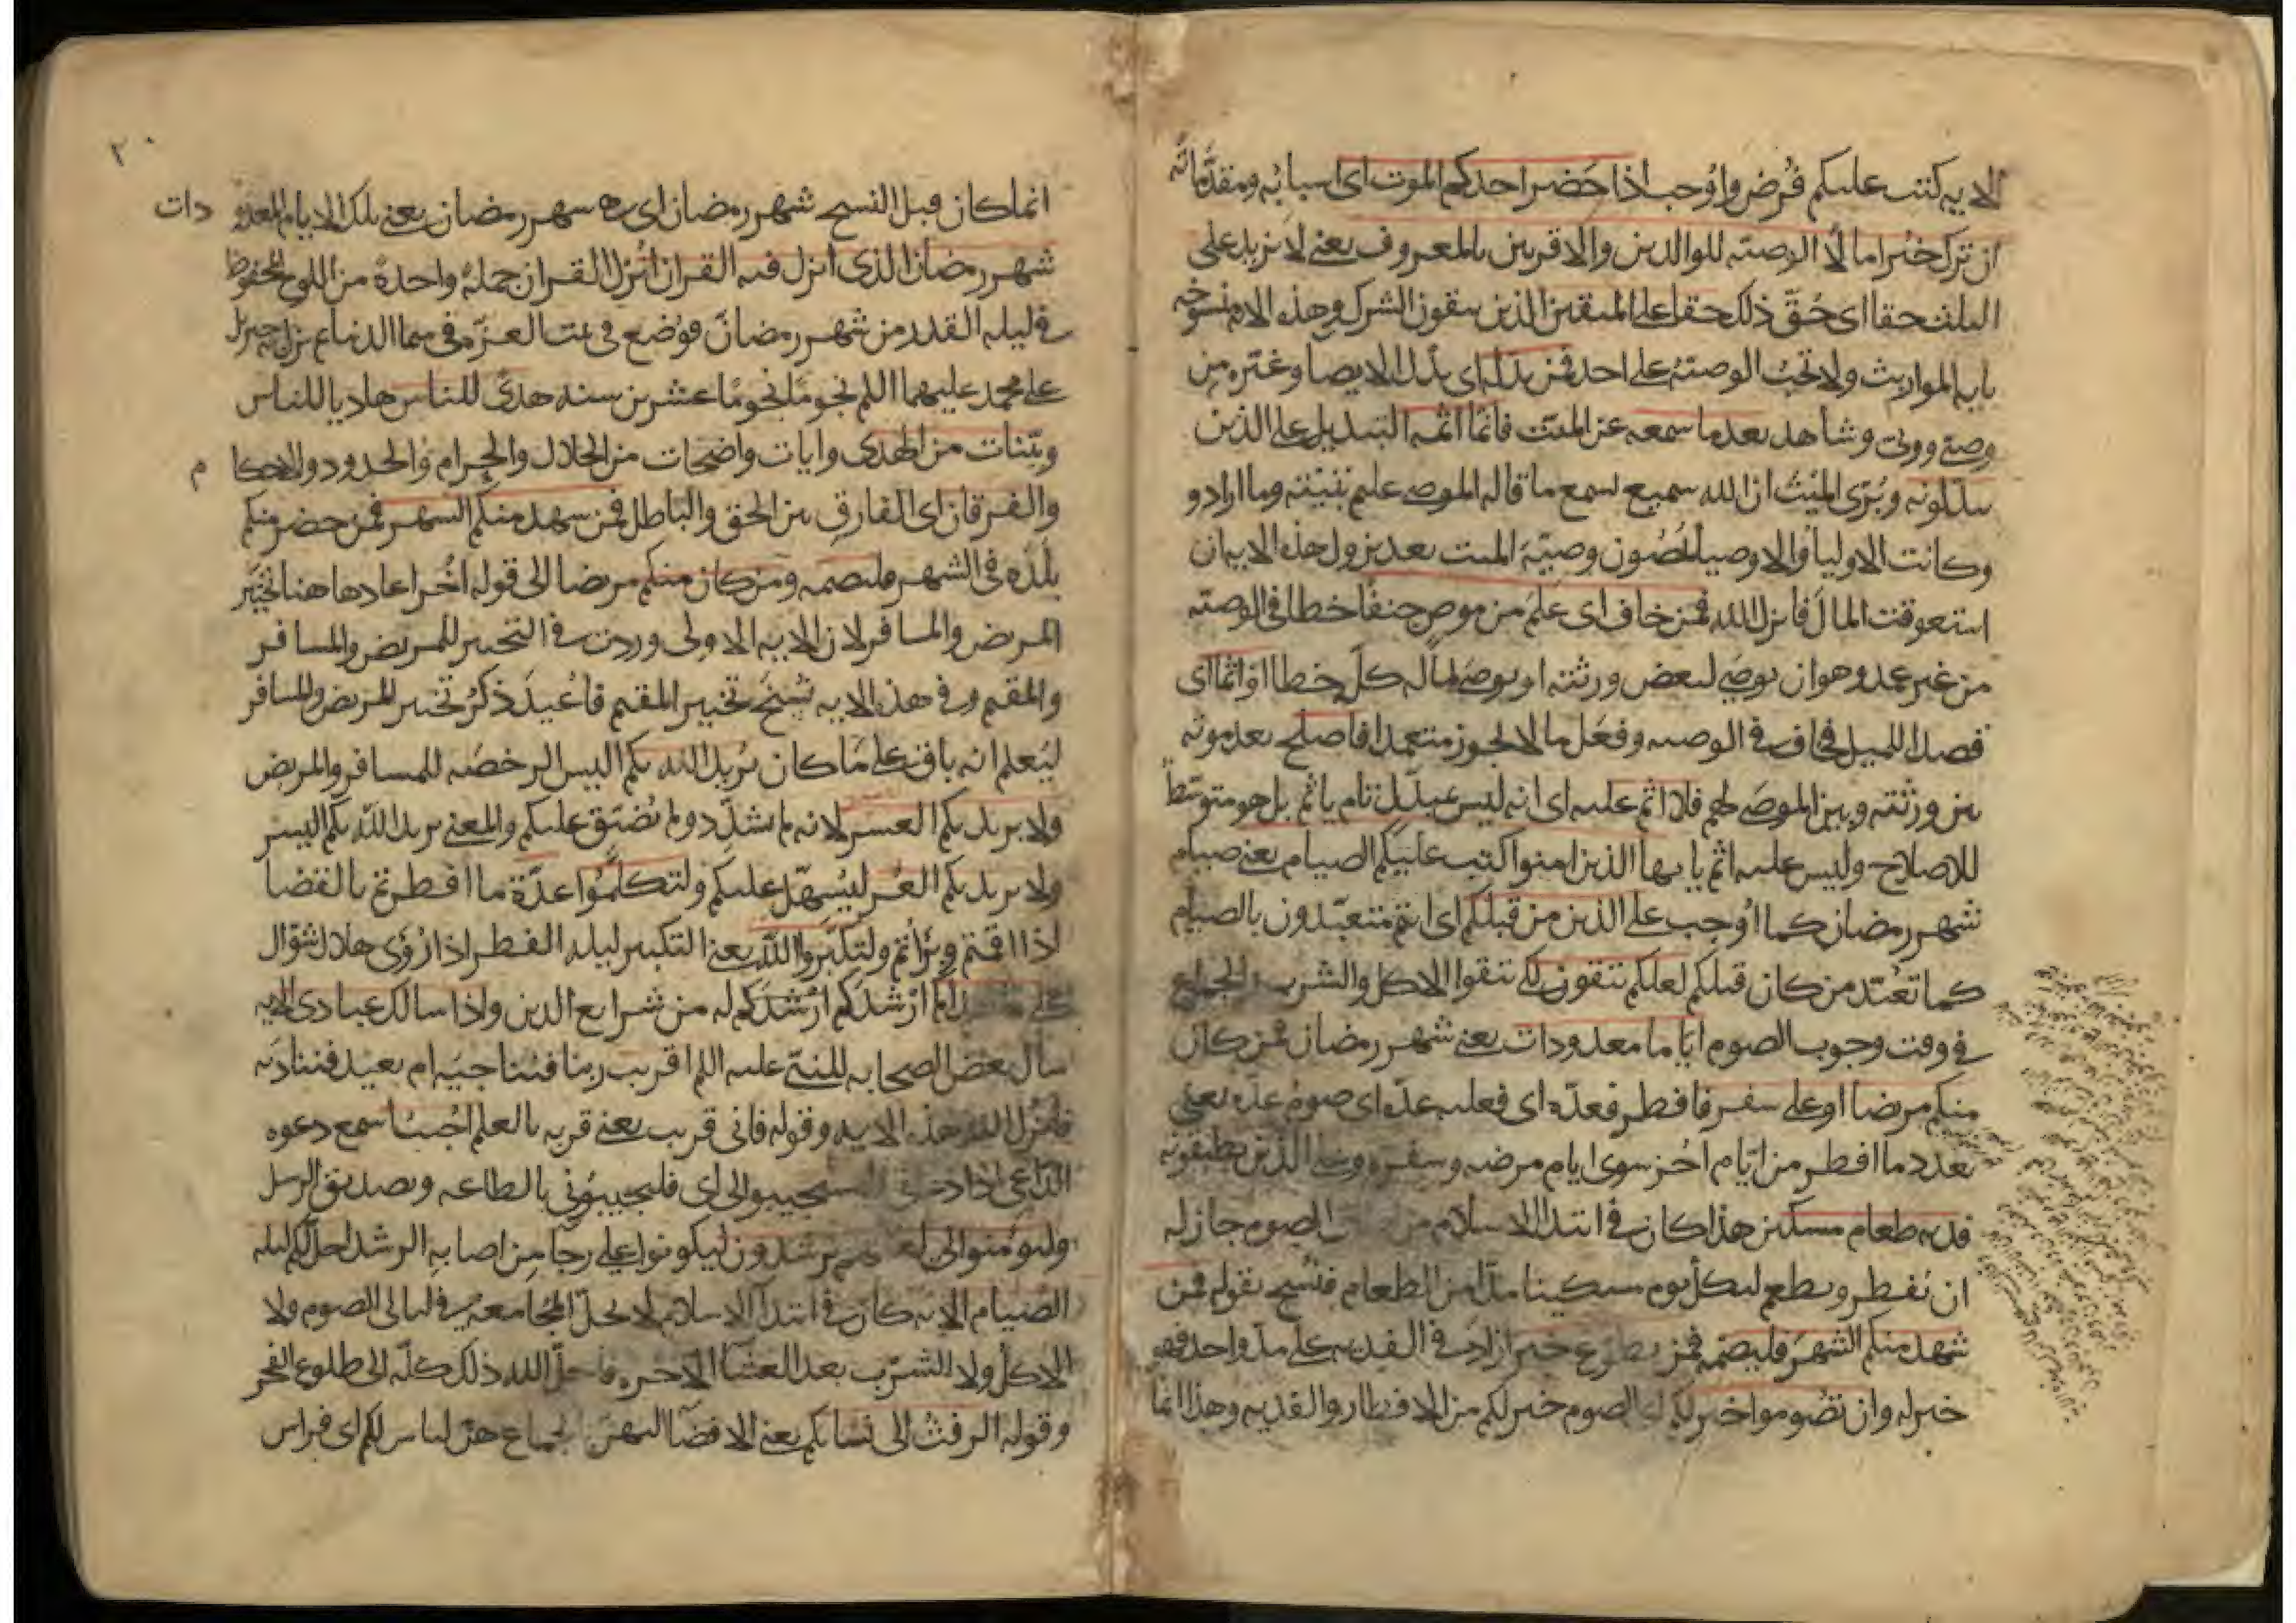 الايه كتب عليكم فُرض واُوجب اذا حَضَر احدكم الموت اى اسبابُه ومقدّماتُه
ان ترك خيرا مالًا الوصيّه للوالدين والاقربين بالمعروف يعنى لا يزيد على
الثلث حقا اى حُقّ ذلك حقا على المتقين الذين يتقون الشرك وهذه الايه منسوخه
بايه المواريث ولا تجبُ الوصيّه على احد فمن بدّله اى بدّل الايصا وغيّره من
وصى وولىّ وشاهد بعد ما سمعه عن الميّت فانّما اثمه التبديل على الذين
يبدّلونه وبُرّى الميّتُ ان الله سميع سمع ما قاله الموصى عليم بنيّته وما ارادو
وكانت الاوليا والاوصيا يُمضون وصيّةَ الميت بعد نزول هذه الايه وان
استعرقت المالَ فانزل الله فمن خاف اى علِمَ من موصٍ جنفًا خطا فى الوصيّه
من غير عمد وهو ان يوصى لبعض ورثته او يوصى بماله كلّه خطا او اثما اى
قصدا للميل فخاف فى الوصيه وفعَل ما لا يجوز متعمدا فاصلح بعد موته
بين ورثته وبين الموصَى لهم فلا اثم عليه اى انه ليس عبدّل ثام ياثم بل هو متوسّطًا
للاصلاح وليس عليه اثم يايها الذين امنوا كتب عليكم الصيام يعنى صيام
شهر رمضان كما اُوجب على الذين من قبلكم اى انتم متعبّدون بالصيام
كما تعُبّد من كان قبلكم لعلكم تتقون لكى تتقوا الاكل والشرب والجماع
فى وقت وجوب الصوم ايّاما معدودات يعنى شهر رمضان فمن كان
منكم مريضا او على سفر فافطر فعدّه اى فعليه عدّه اى صوم عدّه يعنى
بعدد ما افطر من ايّام اُخر سوى ايام مرضه وسفره وعلى الذين يطيقونه
فديه طعام مسكين هذا كان فى ابتدا الاسلام من الصوم جاز له
ان يُفطر ويطعم لكل يوم مسكينا مدّا من الطعام فنُسخ بقوله فمن
شهد منكم الشهرَ فليصمه فمن تطوع خيرا زادَ فى الفديه على مدّ واحد فهو
خير له وان تصُوموا خير لكم اى الصوم خير لكم من الافطار والفديه وهذا انما
٢٠
انما كان قبل النسخ شهر رمضان اى هى شهر رمضان يعنى تلك الايام المعدو دات
شهر رمضان الذى انزل فيه القران اُنزل القران جملةً واحدةً من اللوح المحفوظ
فى ليله القدر من شهر رمضان فوُضع فى بيت العزّه فى سما الدنيا ثم نزل به جبريل
على محمد عليهما السلم نجومًا نجومًا عشرين سنه هدًى للناس هاديا للناس
وبيّنات من الهدى وايات واضحات من الحلال والحرام والحدود والاحكا م
والفرقان اى الفارق بين الحق والباطل فمن شهد منكم الشهر فمن حضر منكم
بلَدَه فى الشهر فليصمه ومن كان منكم مريضا الى قوله اُخَر اعادها هنا تخيّر
المريض والمسافر لان الايه الاولى وردت فى التخيير للمريض والمسافر
والمقيم وفى هذه الايه نُسخَ تخيير المقيم فاُعيدَ ذكرُ تخيير المريض والمسافر
ليُعلم انه باقٍ على ما كان يُريد الله بكم اليسر الرخصَه للمسافر والمريض
ولا يريد بكم العسر لانه لم يشدّد ولم يُضيّق عليكم والمعنى يريد الله بكم اليسر
ولا يريد بكم العُسر ليُسهّل عليكم ولتكملُوا عدّة ما افطرتم بالقضا
اذا اقمتم وبَراتم ولتكبّروا الله يعنى التكبير ليله الفطر اذا رُؤى هلال شوّال
على ارْشدَكم ارْشدَكم له من شرايع الدين واذا سالك عبادى الايه
سأل بعض الصحابه للنبىّ عليه السلم اقريب ربنا فنناجيَه ام بعيد فنناديَه
فانزل الله هذه الايه وقوله فانى قريب يعنى قربه بالعلم اُجيبُ اسمع دعوه
الدّاعى اذا دعانى فليستجيبوا لى اى فليجيبُونى بالطاعه وتصديق الرسل
وليؤمنوا بى لعلهم يرشدون ليكونوا على رجا من اصابه الرشد احلّ لكم ليله
الصّيام الايه كان فى ابتدا الاسلام لا تحلّ المجامعه فى ليالى الصوم ولا
الاكل ولا الشرْب بعد العشآ الاخره فاحلّ الله ذلك كلّه الى طلوع الفجر
وقوله الرفث الى نسَايكم يعنى الافضآ اليهنّ بالجماع هنّ لباس لكم اى فراس